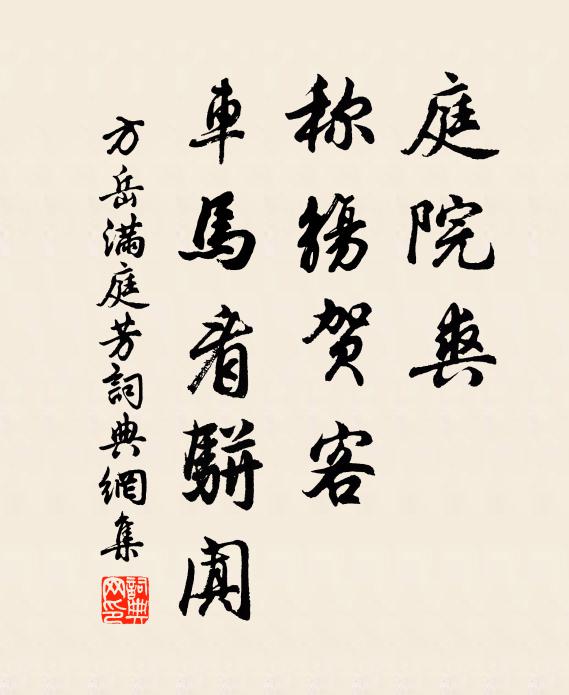 庭院爽
称觴賀客
車馬看駢闐
方岳滿庭芳詞典網集
詞典網印